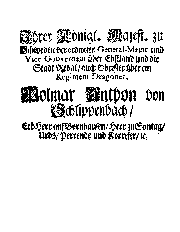 Ihrer Königl. Majest. zu
Schweden verordneter General-Major und
Vice Gouverneur über Ehstland und die
Stadt Reval / auch Obrister über ein
Regiment Dragoner,
Wolmar Anthon von
Schlippenbach /
Erb-Herr auff Bornhausen / Herr zu Sontag /
und